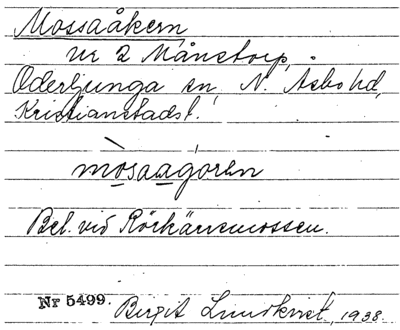 Mossaåkern
nr 2 Månstorp,
Oderljunga sn, N. Åsbo hd,
Kristianstads l.
mòsaagóren
Bel. vid Rörkärrsmossen.
Nr 5499. Birgit Lundkvist, 1938.